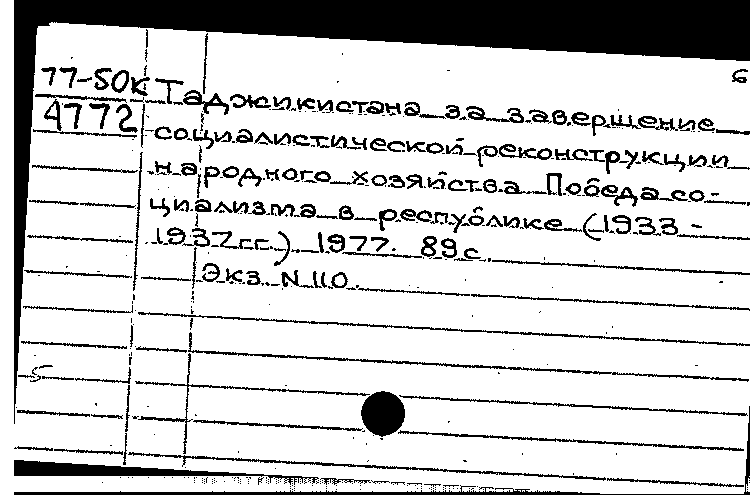 6
77-50к Таджикистана за завершение
4772 социалистической реконструкции
народного хозяйства. Победа со-
циализма в республике (1933 -
1937 гг.) 1977. 89 с.
Экз. N 110.
5